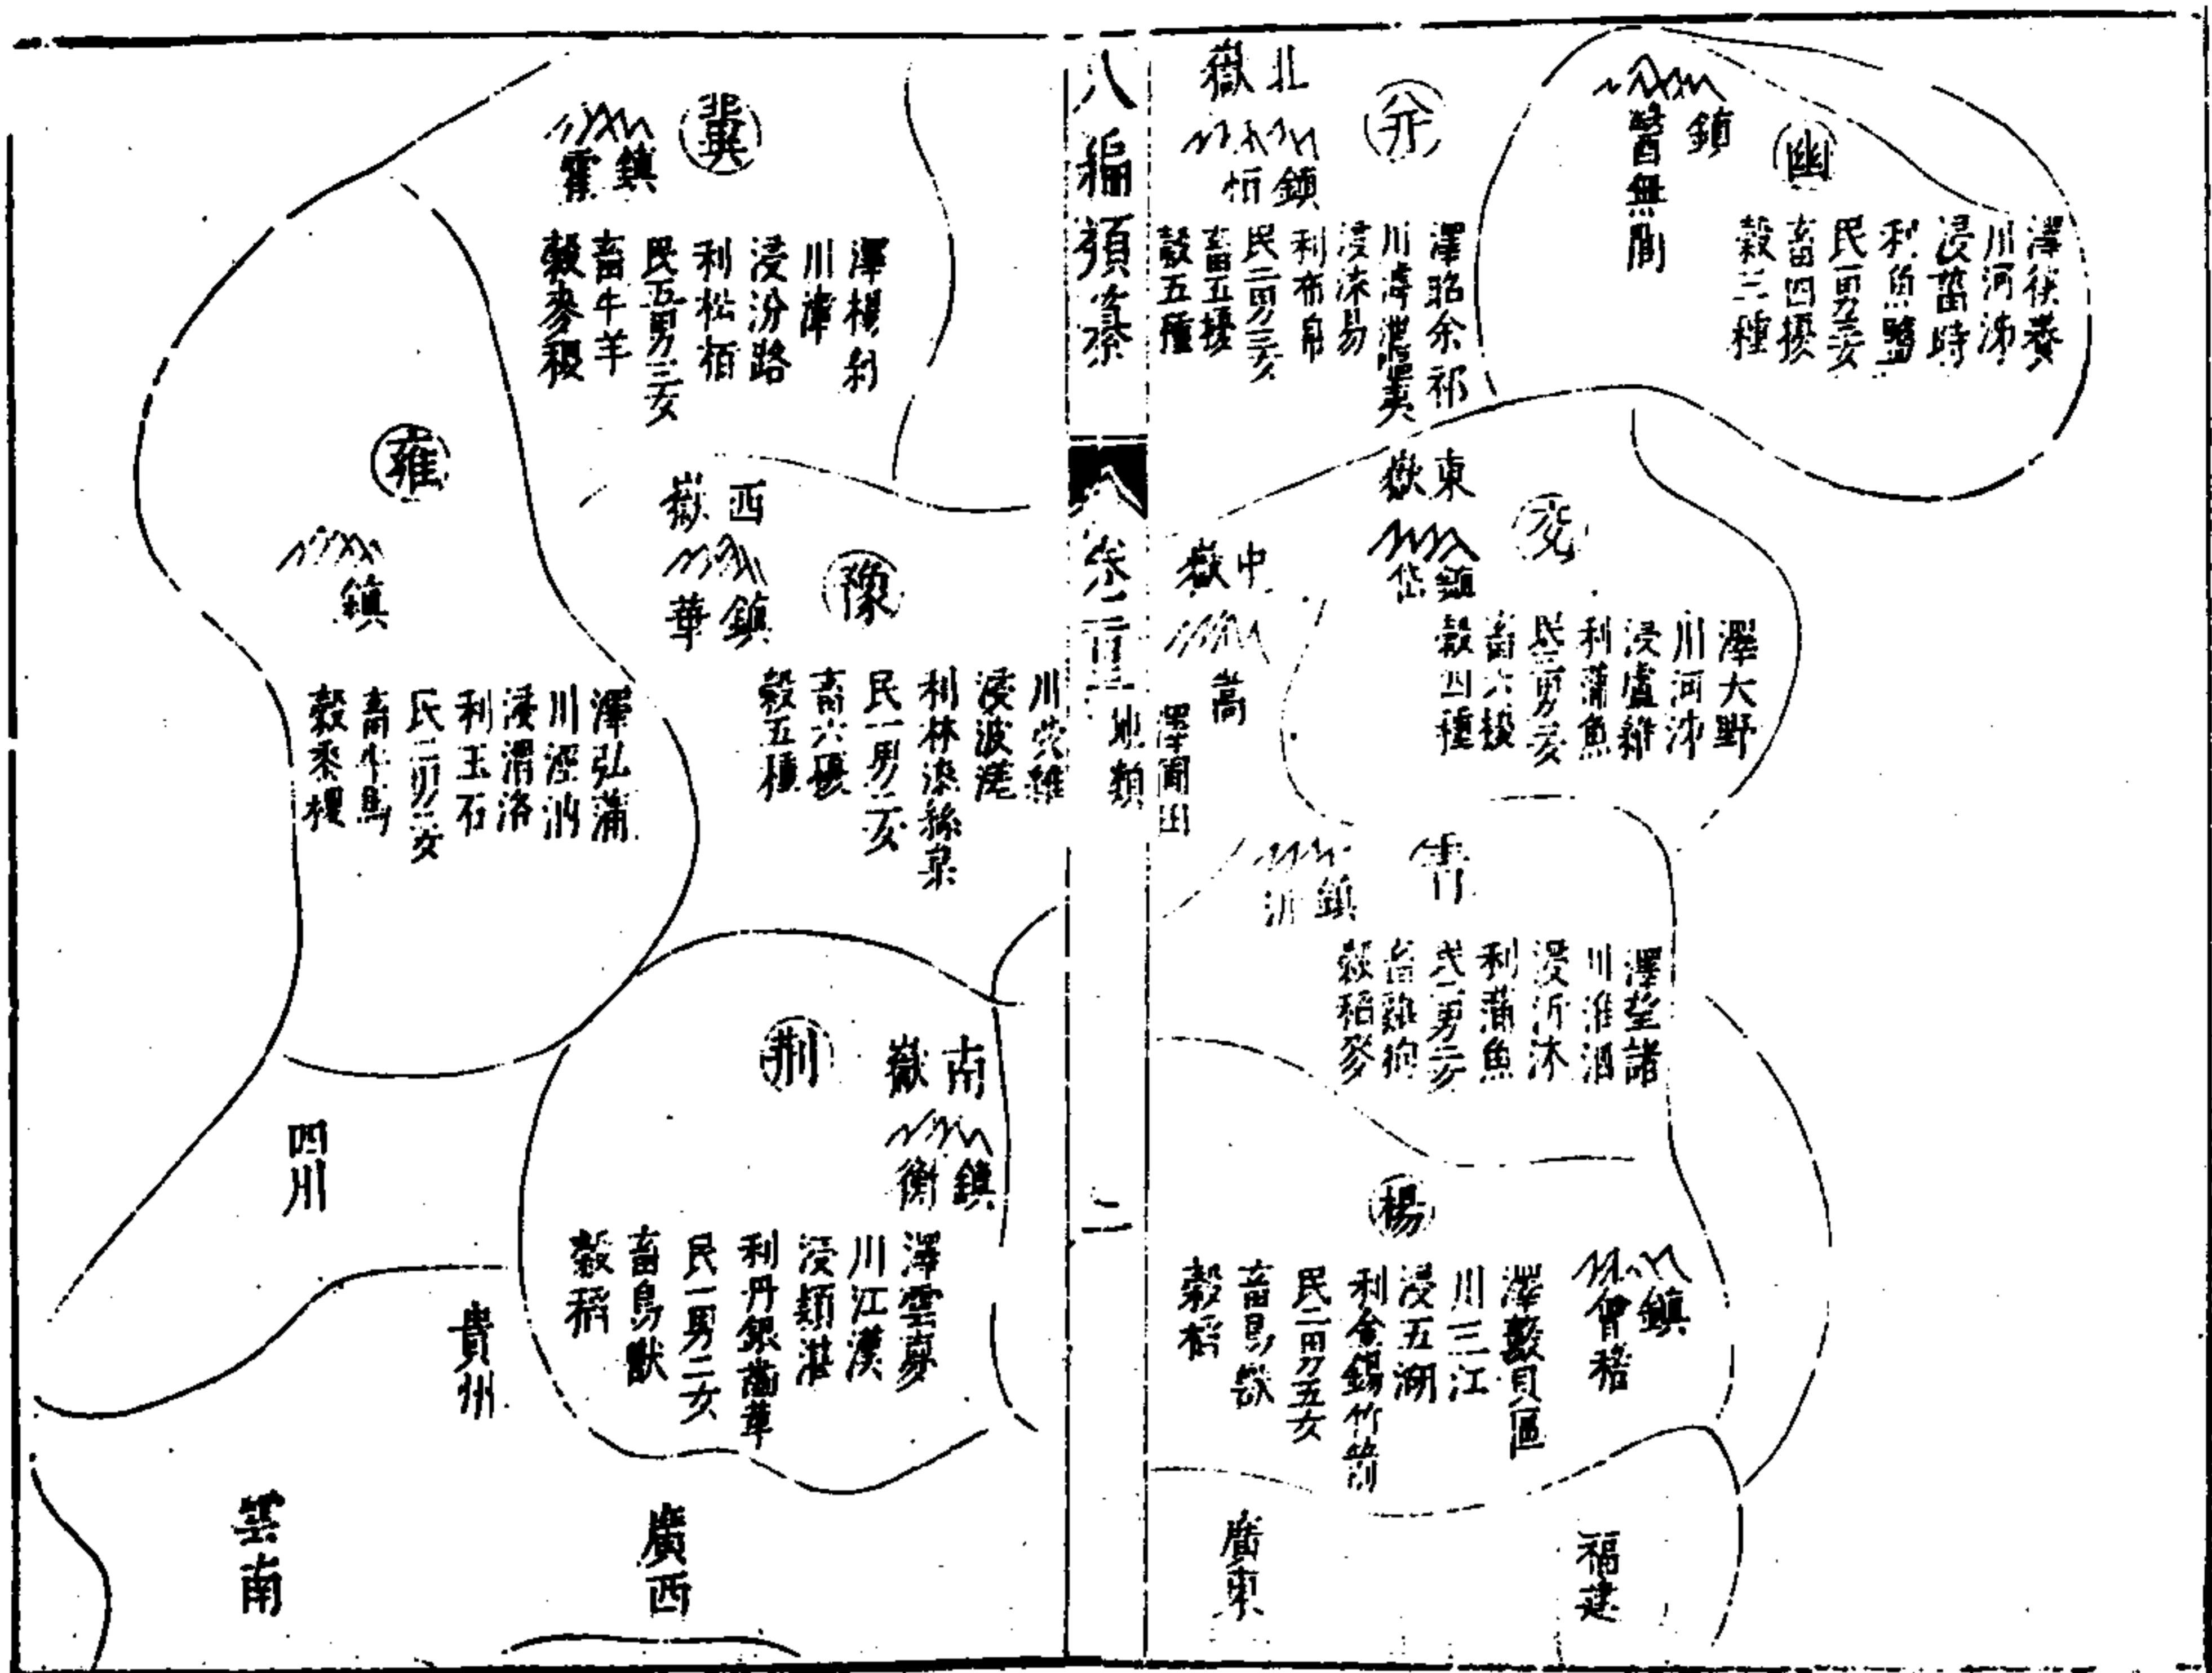 幽
鎮
醫無閭
澤㺉養
川河泲
浸菑時
利魚鹽
民一男三女
畜四擾
穀三種
并
北
嶽
鎮
恒
澤昭余祁
川滹沱嘔夷
浸淶易
利布帛
民二男三女
畜五擾
穀五種
兗
東
嶽
鎮
岱
澤大野
川河泲
浸盧濰
利蒲魚
民二男三女
畜六擾
穀四種
中
嶽
嵩
澤圃田
青
鎮
沂
澤望諸
川淮泗
浸沂沐
利蒲魚
民二男二女
畜雞狗
穀稻麥
楊
鎮
會稽
澤藪具區
川三江
浸五湖
利金錫竹箭
民二男五女
畜鳥獸
穀稻
福建
廣東
八編類纂
卷一百十三
地類
二
冀
鎮
霍
澤楊紆
川漳
浸汾路
利松栢
民五男三女
畜牛羊
穀麥稷
豫
西
嶽
鎮
華
川滎雒
浸波溠
利林漆絲枲
民一男二女
畜六擾
穀五種
雍
鎮
澤弘蒲
川涇汭
浸渭洛
利玉石
民三男二女
畜牛馬
穀黍稷
荆
南
嶽
鎮
衡
澤雲夢
川江漢
浸頴湛
利丹銀齒革
民一男二女
畜鳥獸
穀稻
四川
貴州
雲南
廣西